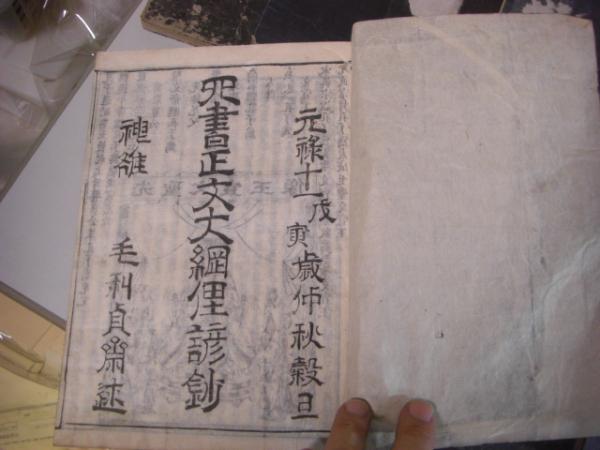 元禄十一戊寅歳仲秋穀旦
四書正文大綱俚諺鈔
神雒 毛利貞齋述